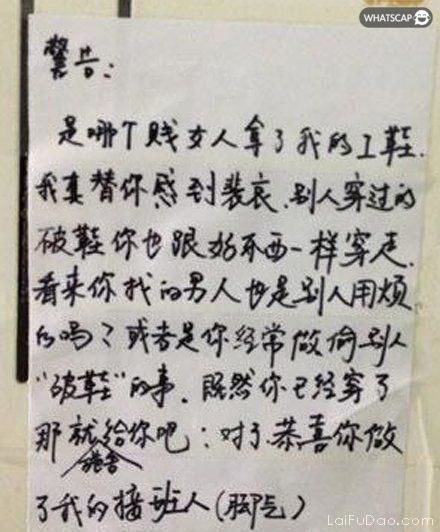 WHATSCAP
警告：
是哪个贱女人拿了我的工鞋.
我真替你感到裴哀.别人穿过的
破鞋你也跟好东西一样穿走.
看来你找的男人也是别人用烦
的吗？或者是你经常做偷别人
“破鞋”的事.既然你已经穿了
那就施舍给你吧：对了.恭喜你做
了我的接班人（脚气）
LaiFuDao.com